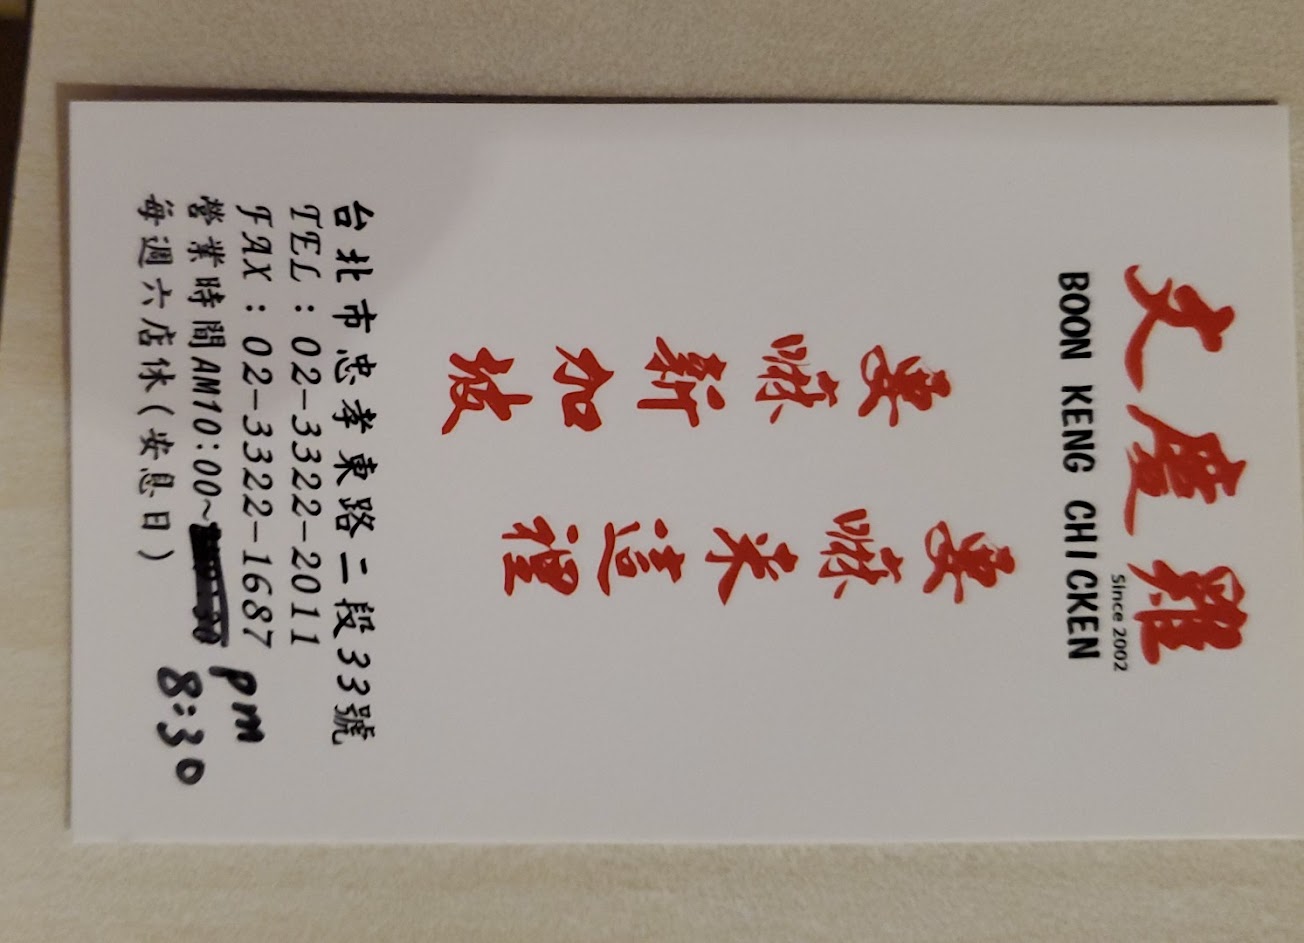 文慶雞
Since 2002
BOON KENG CHICKEN
要嘛來這裡
要嘛新加坡
台北市忠孝東路二段33號
TEL:02-3322-2011
FAX:02-3322-1687
營業時間AM10:00~ pm
8:30
每週六店休(安息日)